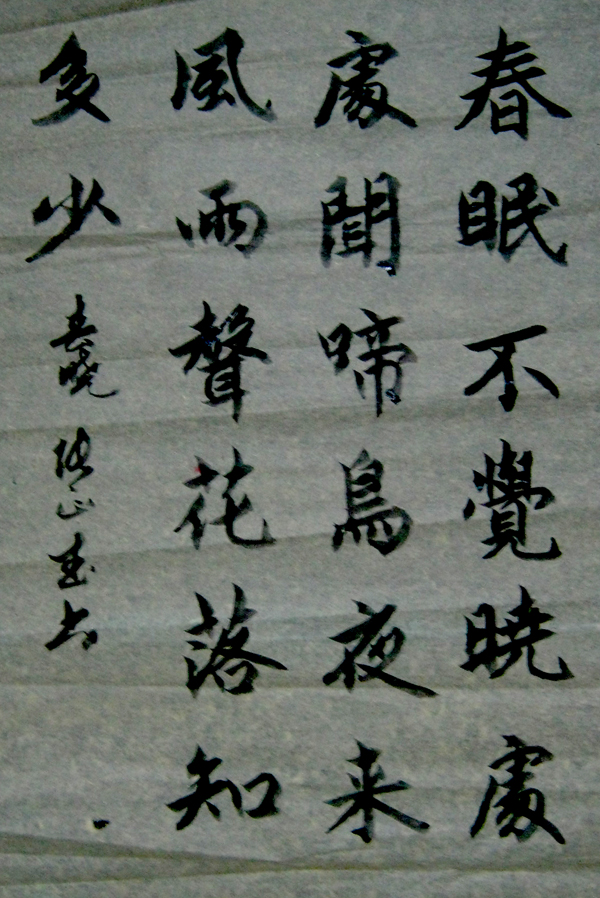 春眠不覺曉處
處聞啼鳥夜来
風雨聲花落知
多少
春曉